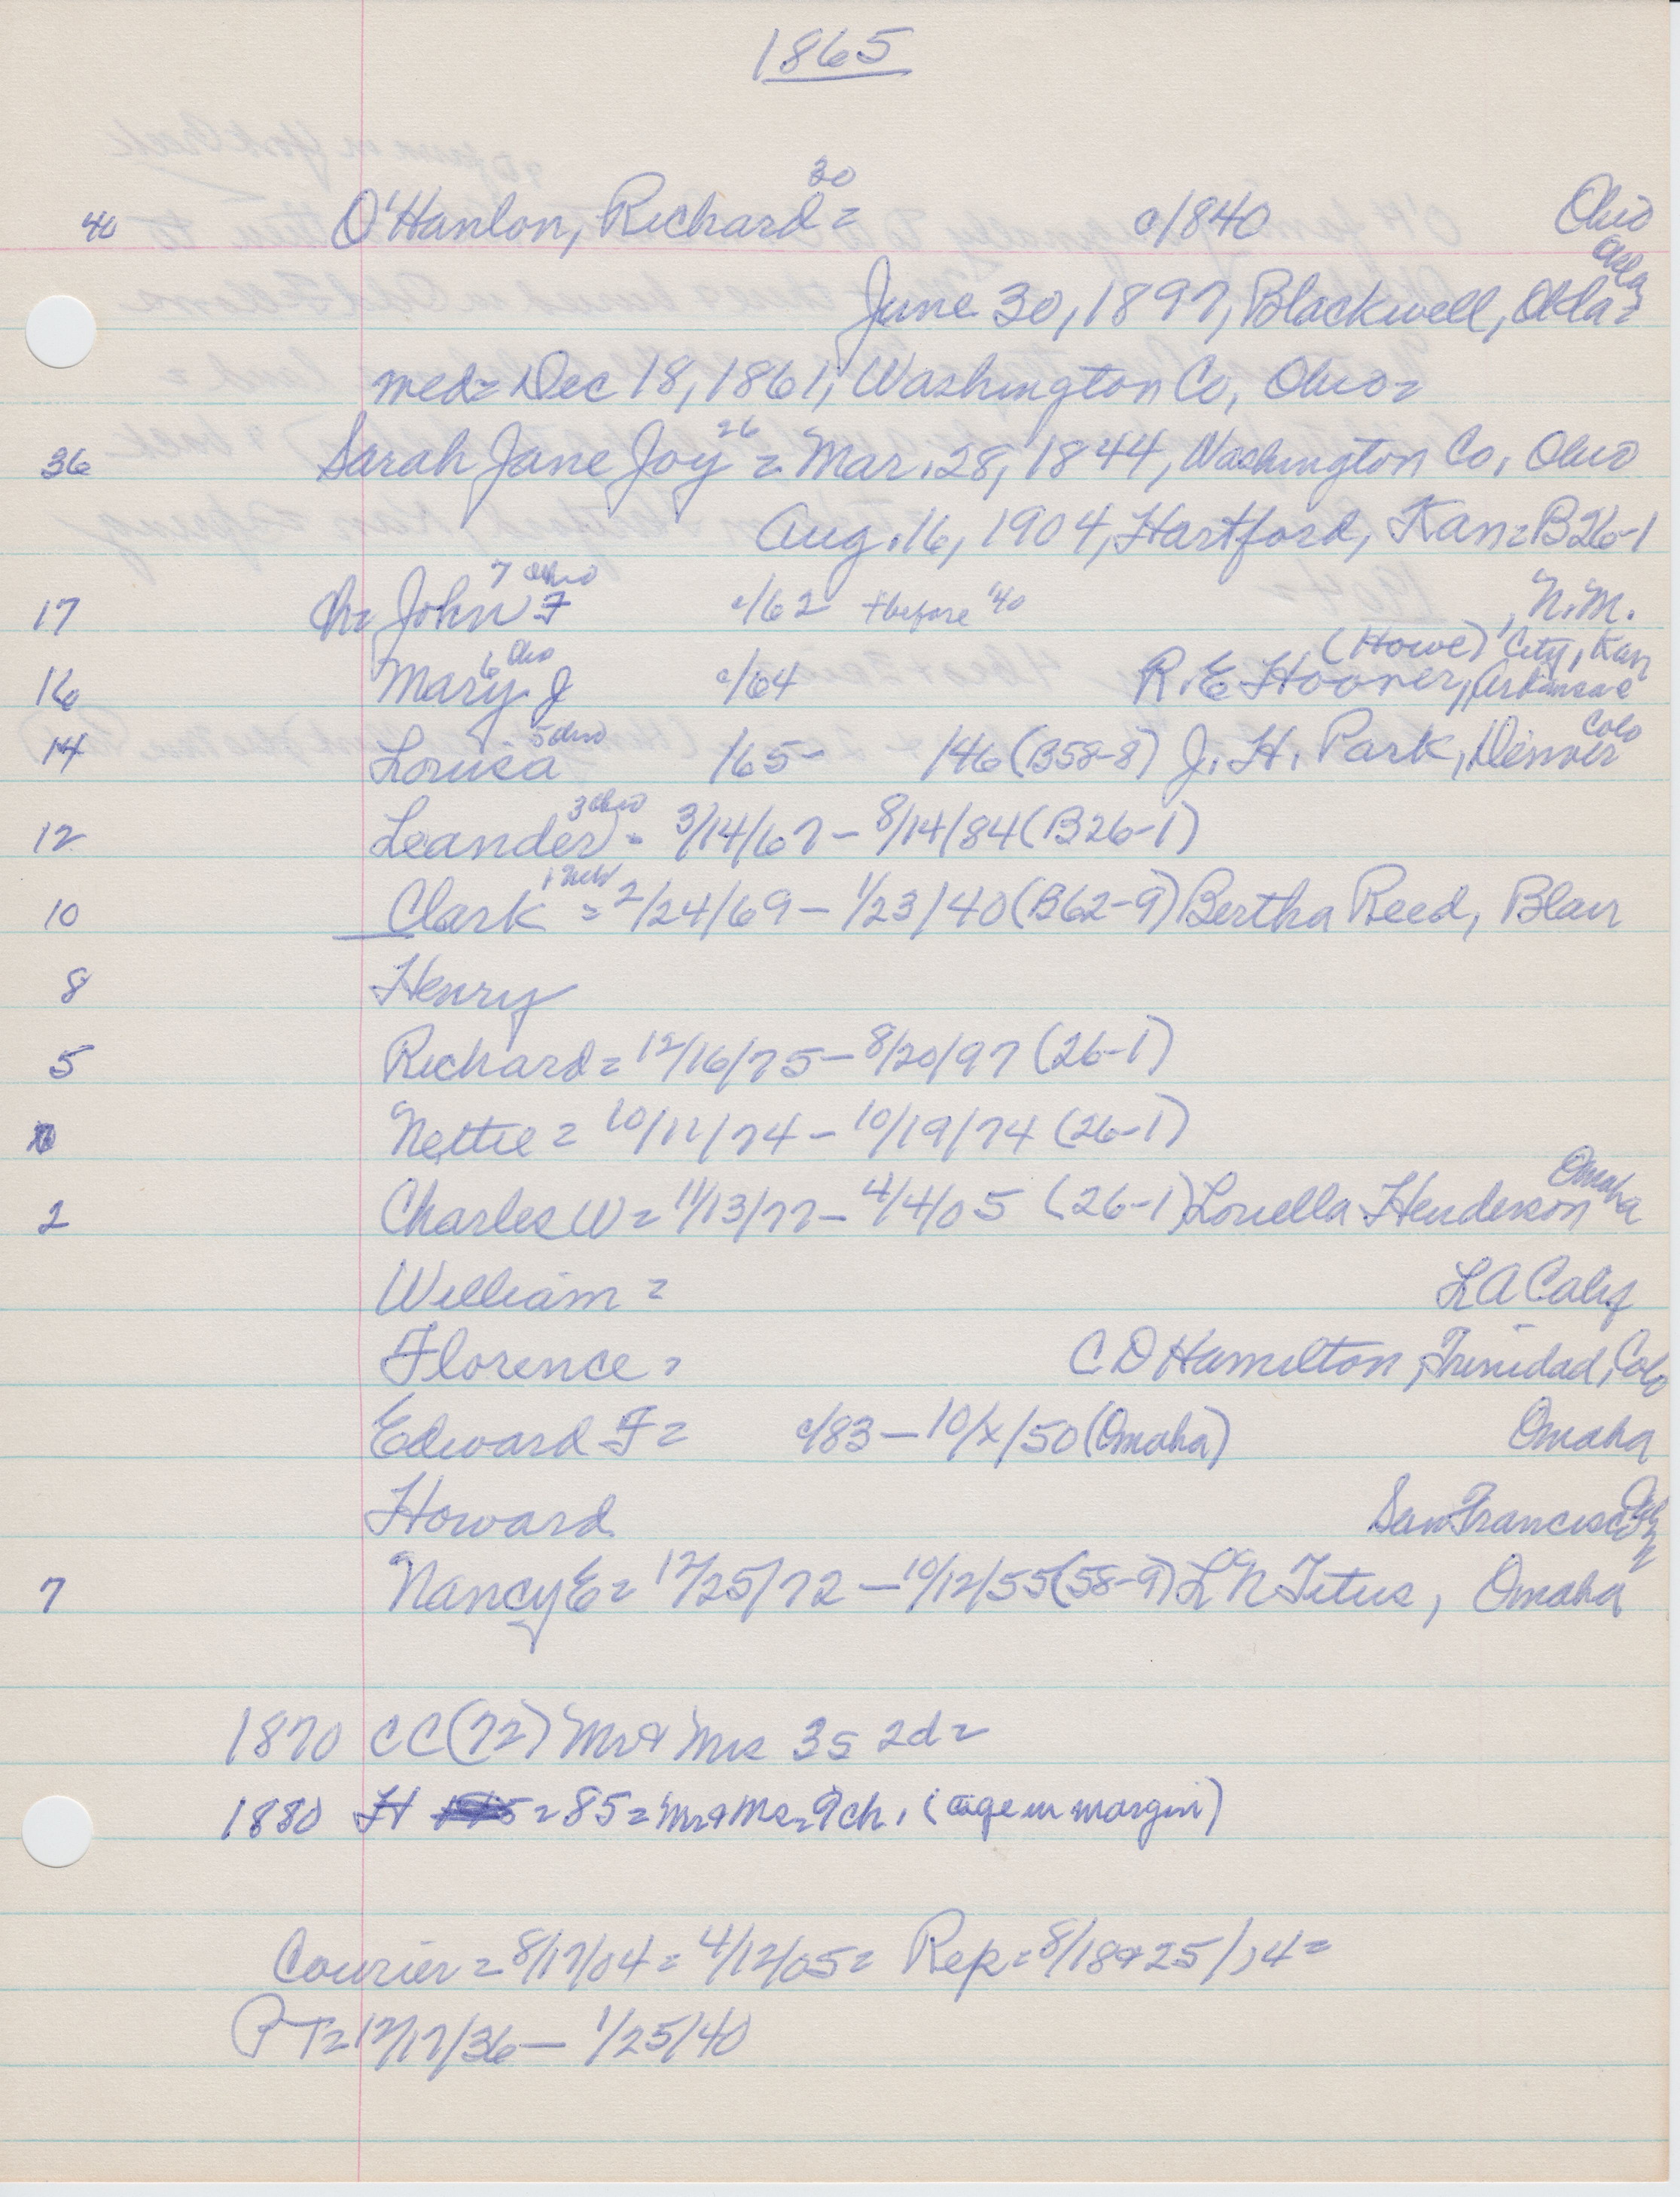 1865
30
40 O'Hanlon, Richard = c/1840 Ohio
June 30, 1897, Blackwell, Okla =
Okla
med = Dec 18, 1861, Washington Co, Ohio =
26
36 Sarah Jane Joy = Mar. 28, 1844, Washington Co, Ohio
Aug. 16, 1904, Hartford, Kan = B26-1
7 Ohio
17 Ch = John F c/62 + before '40 , N.M.
6 Ohio (Howe) City, Kan
16 Mary J c/64 R. E Hoover, Arkansas
5 Ohio Colo
14 Louisa /65 - /46 (B58-8) J. H. Park, Denver
3 Ohio
12 Leander = 3/14/67 - 8/14/84 (B26-1)
1 Neb
10 Clark = 2/24/69 - 1/23/40 (B62-9) Bertha Reed, Blair
8 Henry
5 Richard = 12/16/75 - 8/20/97 (26-1)
Nettie = 10/11/74 - 10/19/74 (26-1)
Omaha
2 Charles W = 11/13/77 - 4/4/05 (26-1) Louella Henderson
William = LA Calif
Florence = C D Hamilton, Trinidad, Colo
Edward F = c/83 - 10/x/50 (Omaha) Omaha
Howard San Francisco
7 Nancy E = 12/25/72 - 10/12/55 (58-9) L N Titus, Omaha
1870 CC (72) Mr & Mrs 3s 2d =
1880 H = 85 = Mr & Mrs = 9 ch. (age in margin)
Courier = 8/17/04 = 4/12/05 = Rep = 8/18 & 25/04 =
PT = 12/17/36 - 1/25/40